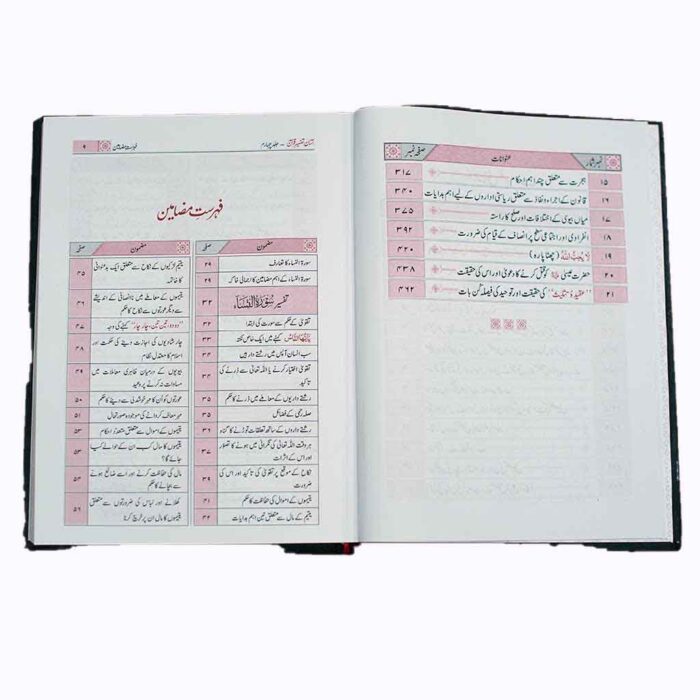 نمبر شمار عنوانات صفحہ نمبر
۱۵ ہجرت سے متعلق چند اہم احکام ۳۱۷
۱۶ قانون کے اجراء و نفاذ سے متعلق ریاستی اداروں کے لیے اہم ہدایات ۳۴۰
۱۷ میاں بیوی کے اختلافات اور صلح کا راستہ ۳۷۵
۱۸ انفرادی اور اجتماعی سطح پر انصاف کے قیام کی ضرورت ۳۹۲
۱۹ لَا یُحِبُّ اللّٰہُ (چھٹا پارہ) ۴۲۰
۲۰ حضرت عیسیٰ کو قتل کرنے کا دعویٰ اور اس کی حقیقت ۴۳۸
۲۱ ’’عقیدۂ تثلیث‘‘ کی حقیقت اور توحید کی فیصلہ کن بات ۴۶۲
آسان تفسیر قرآن – جلد چہارم فہرست مضامین ۹
فہرستِ مضامین
مضمون صفحہ
سورۃ النساء کا تعارف ۲۹
سورۃ النساء کے اہم مضامین کا اجمالی خاکہ ۲۹
تفسیر سُوْرَۃُ النِّسَآء ۳۲
تقویٰ کے حکم سے سورت کی ابتدا ۳۲
یٰٓاَیُّہَا النَّاسُ کہنے میں ایک خاص نکتہ ۳۳
سب انسان آپس میں رشتے دار ہیں ۳۴
تقویٰ اختیار کرنے یا اللہ تعالیٰ سے ڈرنے کی
تاکید ۳۴
رشتے داریوں کے معاملے میں ڈرنے کا حکم ۳۵
صلہ رحمی کے فضائل ۳۵
رشتے داروں کے ساتھ تعلقات توڑنے کا گناہ ۳۶
ہر وقت اللہ تعالیٰ کی نگرانی میں ہونے کا تصور
اور اس کے اثرات ۳۷
نکاح کے موقع پر تقویٰ کی تاکید اور اس کی
ضرورت ۳۹
یتیموں کے اموال کی حفاظت کا حکم ۴۱
یتیم کے مال سے متعلق تین اہم ہدایات ۴۲
مضمون صفحہ
یتیم لڑکیوں کے نکاح سے متعلق ایک بدعنوانی
کا خاتمہ ۴۵
یتیموں کے معاملے میں ناانصافی کے اندیشے
سے دیگر عورتوں سے نکاح کا حکم ۴۶
’’دو دو، تین تین، چار چار‘‘ کہنے کی وجہ ۴۷
چار شادیوں کی اجازت دینے کی حکمت اور
اسلام کا معتدل نظام ۴۸
بیویوں کے درمیان ظاہری معاملات میں
مساوات نہ کرنے پر وعید ۴۹
عورتوں کو اُن کا مہر خوشدلی سے دینے کا حکم ۵۰
مہر معاف کروانے کی موجودہ صورتحال ۵۱
یتیموں کے اموال سے متعلق متعدد احکام ۵۳
یتیموں کا مال کب ان کے حوالے کیا
جائے گا؟ ۵۳
مال کی حفاظت کرنے اور اسے ضائع ہونے
سے بچانے کا حکم ۵۴
کھلانے اور لباس کی ضرورتوں سے متعلق
یتیموں کا مال ان پر خرچ کرنا ۵۶